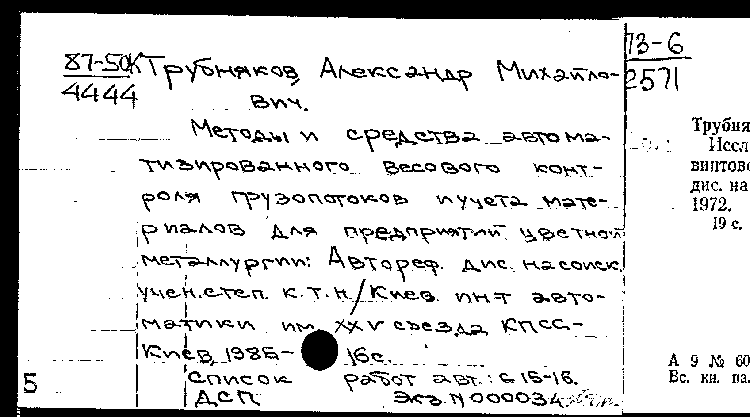 87-50К
4444
Трубняков, Александр Михайло-
вич.
Методы и средства автома-
тизированного весового конт-
роля грузопотоков и учета мате-
риалов для предприятий цветной
металлургии: Автореф. дис. на соиск.
учен. степ. к.т.н / Киев. ин-т авто-
матики им. XXV съезда КПСС-
Киев, 1985- 16с.
Список работ авт.: с 15-16.
ДСП Экз. N 000034
5
73-6
2571
Трубня
Иссл
винтово
дис. на
1972.
19 с.
А 9 № 60
Вс. кн. па.